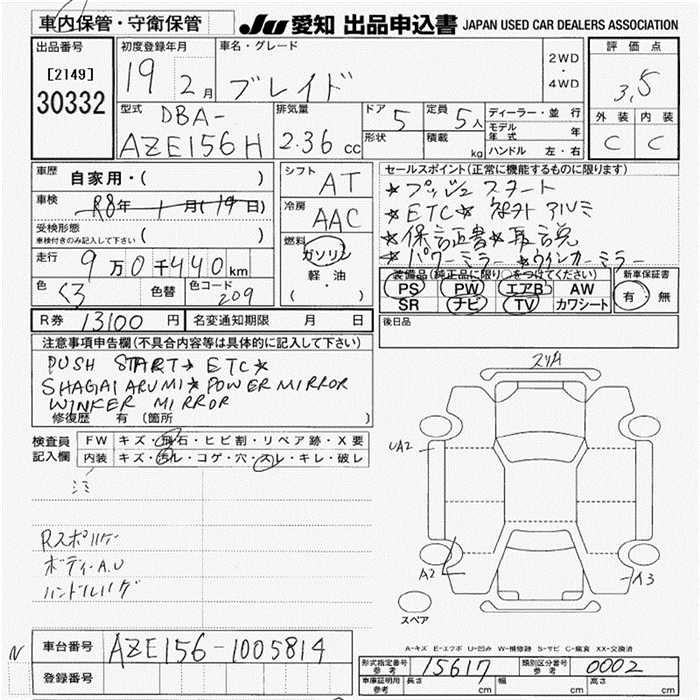 車内保管・守衛保管 JU 愛知 出品申込書 JAPAN USED CAR DEALERS ASSOCIATION
出品番号 初度登録年月 車名・グレード 評価点
[2149] 19 2月 ブレイド 2WD・4WD 3.5
30332
型式 DBA- 排気量 ドア 5 定員 5人 ディーラー・並行 外装 内装
AZE156H 2.36 cc 形状 積載 kg モデル年式 年 C C
ハンドル 左・右
車歴 自家用・( ) シフト AT セールスポイント(正常に機能するものに限ります)
車検 R8年 1月(19日) 冷房 AAC ★プッシュスタート
★ETC★ 社外アルミ
受検形態 ( ) ★保証書★取説
車検付きのみ記入して下さい
★パワーミラー ★ウインカーミラー
走行 9万0千440km 燃料 ガソリン・軽油( )
装備品(純正品に限り○をつけてください) 新車保証書
色 色替 色コード 209 PS PW エアB AW 有・無
SR ナビ TV カワシート
R券 13100円 名変通知期限 月 日 後日品
注意事項申告欄(不具合内容等は具体的に記入して下さい)
PUSH START★ ETC★
SHAGAI ARUMI★POWER MIRROR
WINKER MIRROR
修復歴 有(箇所 )
検査員記入欄 FW キズ・飛石・ヒビ割・リペア跡・X要
内装 キズ・汚ル・コゲ・穴・スレ・キレ・破レ
スリキ
UA2
A2
A3
スペア
Rスポ
ボディーA.U
ハンドル
A-キズ E-エクボ U-凹み W-補修跡 S-サビ C-腐食 XX-交換済
N 車台番号 AZE156-1005814
登録番号
形式指定番号 参考 15617 類別区分番号 参考 0002
車庫証明用 参考 長さ cm 幅 cm 高さ cm